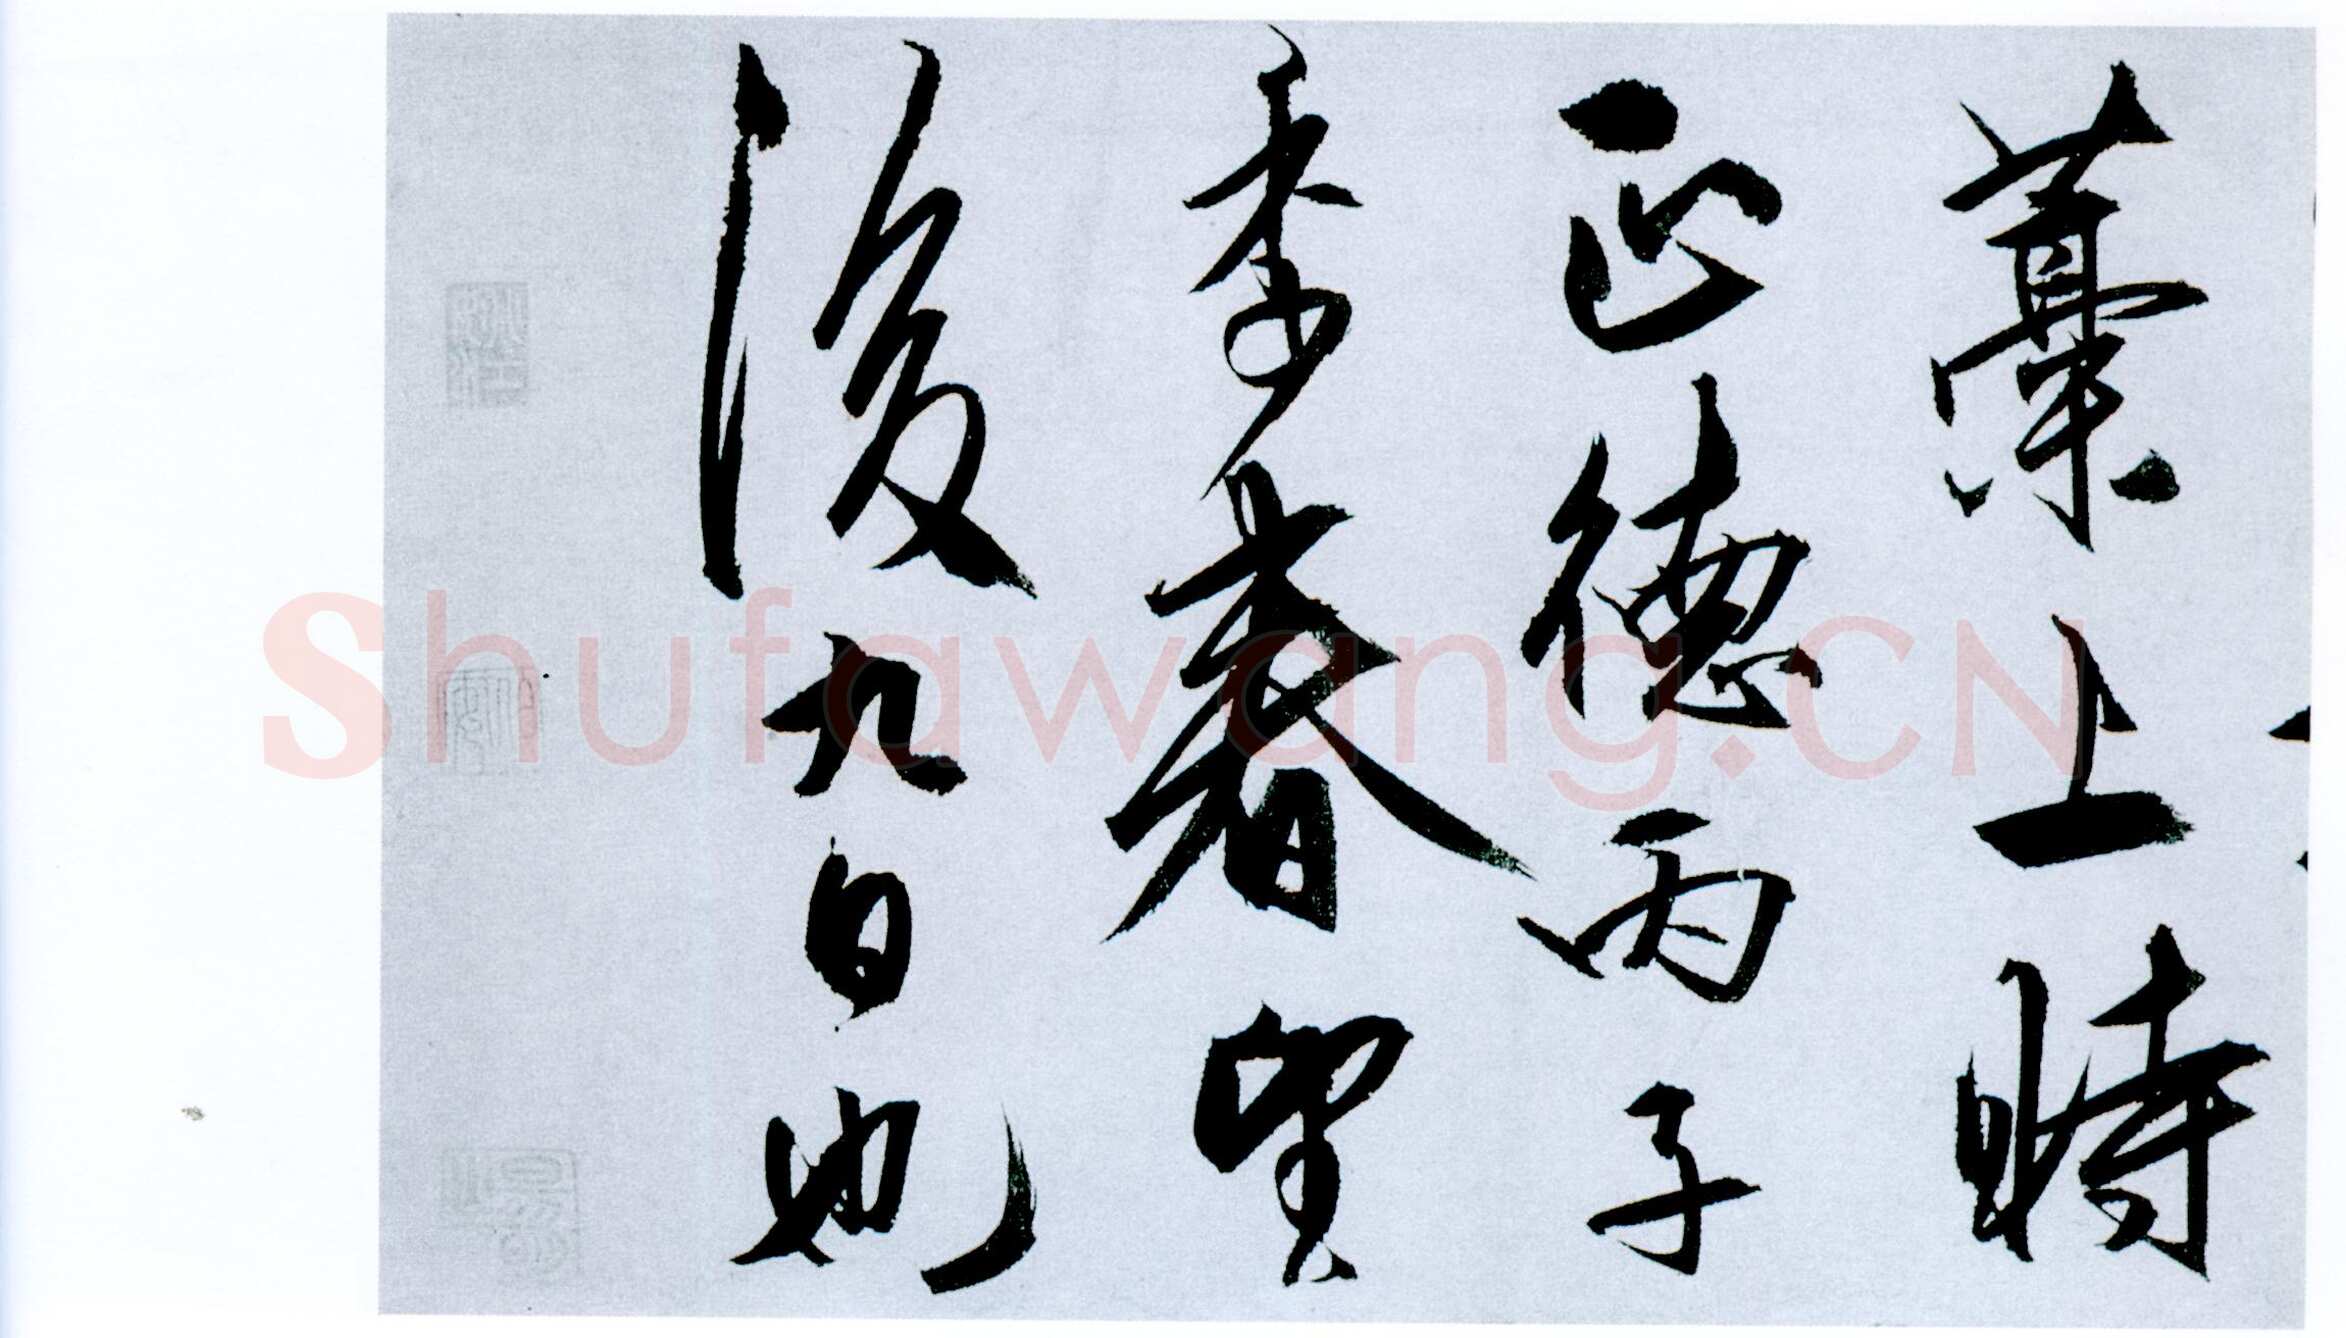 藁上時
正德丙子
季春望
後九日也
Shufawang.CN